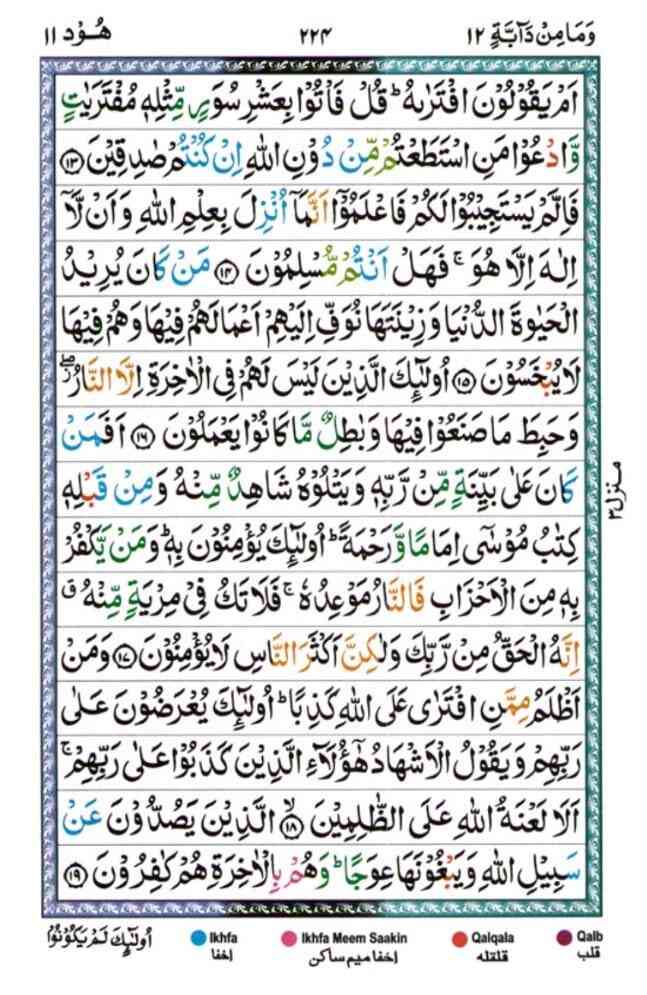 وَمَا مِنْ دَآبَّةٍ ١٢
٢٢٤
هُوْد ١١
اَمْ يَقُوْلُوْنَ افْتَرٰىهُ ؕ قُلْ فَاْتُوْا بِعَشْرِ سُوَرٍ مِّثْلِهٖ مُفْتَرَيٰتٍ
وَّادْعُوْا مَنِ اسْتَطَعْتُمْ مِّنْ دُوْنِ اللّٰهِ اِنْ كُنْتُمْ صٰدِقِيْنَ ﴿١٣﴾
فَاِلَّمْ يَسْتَجِيْبُوْا لَكُمْ فَاعْلَمُوْۤا اَنَّمَاۤ اُنْزِلَ بِعِلْمِ اللّٰهِ وَاَنْ لَّاۤ
اِلٰهَ اِلَّا هُوَ ۚ فَهَلْ اَنْتُمْ مُّسْلِمُوْنَ ﴿١٤﴾ مَنْ كَانَ يُرِيْدُ
الْحَيٰوةَ الدُّنْيَا وَزِيْنَتَهَا نُوَفِّ اِلَيْهِمْ اَعْمَالَهُمْ فِيْهَا وَهُمْ فِيْهَا
لَا يُبْخَسُوْنَ ﴿١٥﴾ اُولٰٓئِكَ الَّذِيْنَ لَيْسَ لَهُمْ فِى الْاٰخِرَةِ اِلَّا النَّارُ ۖ
وَحَبِطَ مَا صَنَعُوْا فِيْهَا وَبٰطِلٌ مَّا كَانُوْا يَعْمَلُوْنَ ﴿١٦﴾ اَفَمَنْ
كَانَ عَلٰى بَيِّنَةٍ مِّنْ رَّبِّهٖ وَيَتْلُوْهُ شَاهِدٌ مِّنْهُ وَمِنْ قَبْلِهٖ
كِتٰبُ مُوْسٰٓى اِمَامًا وَّرَحْمَةً ؕ اُولٰٓئِكَ يُؤْمِنُوْنَ بِهٖ ؕ وَمَنْ يَّكْفُرْ
بِهٖ مِنَ الْاَحْزَابِ فَالنَّارُ مَوْعِدُهٗ ۚ فَلَا تَكُ فِىْ مِرْيَةٍ مِّنْهُ ۗ
اِنَّهُ الْحَقُّ مِنْ رَّبِّكَ وَلٰكِنَّ اَكْثَرَ النَّاسِ لَا يُؤْمِنُوْنَ ﴿١٧﴾ وَمَنْ
اَظْلَمُ مِمَّنِ افْتَرٰى عَلَى اللّٰهِ كَذِبًا ؕ اُولٰٓئِكَ يُعْرَضُوْنَ عَلٰى
رَبِّهِمْ وَيَقُوْلُ الْاَشْهَادُ هٰٓؤُلَآءِ الَّذِيْنَ كَذَبُوْا عَلٰى رَبِّهِمْ ۚ
اَلَا لَعْنَةُ اللّٰهِ عَلَى الظّٰلِمِيْنَ ۙ﴿١٨﴾ الَّذِيْنَ يَصُدُّوْنَ عَنْ
سَبِيْلِ اللّٰهِ وَيَبْغُوْنَهَا عِوَجًا ؕ وَهُمْ بِالْاٰخِرَةِ هُمْ كٰفِرُوْنَ ﴿١٩﴾
منزل ٣
اُولٰٓئِكَ لَمْ يَكُوْنُوْا
Ikhfa
اخفا
Ikhfa Meem Saakin
اخفا میم ساکن
Qalqala
قلقلہ
Qalb
قلب